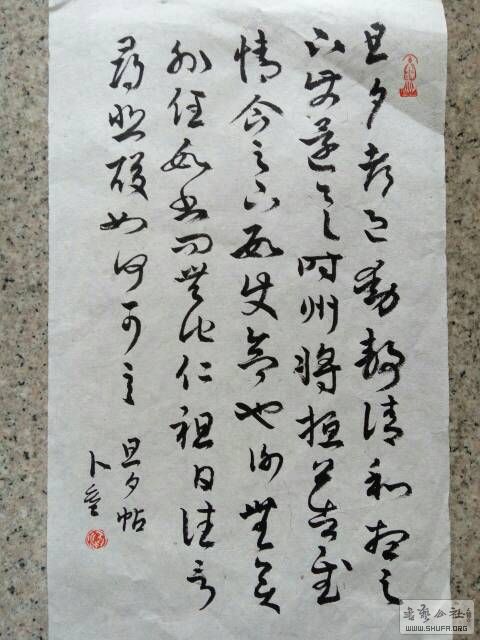 旦夕都邑動静清和想足
下使還具時州將桓公告慰
情企足下數使命也謝無奕
外任數書問無他仁祖日往言
尋悲酸如何可言
旦夕帖
卜
書藝公社
WWW.SHUFA.ORG